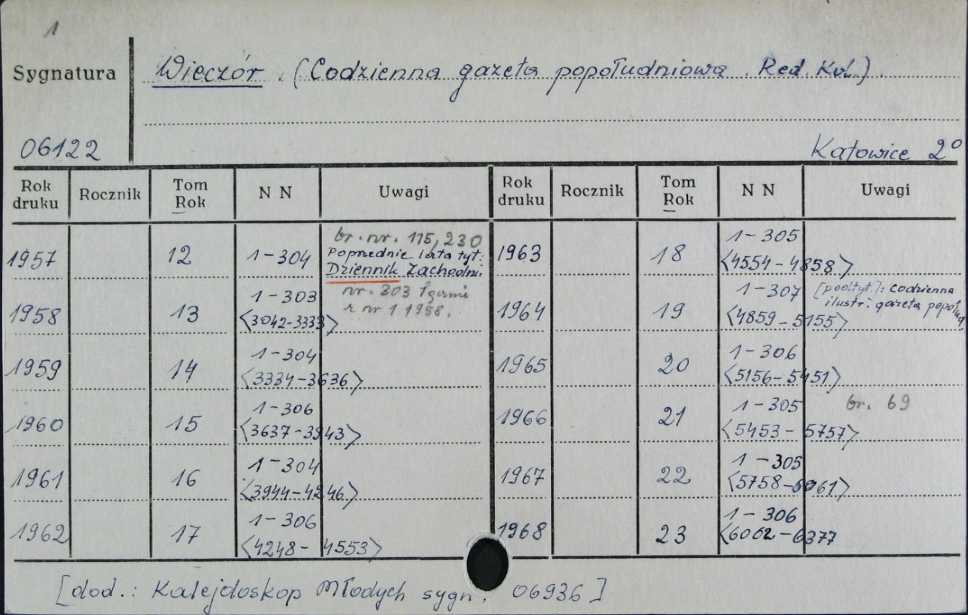 1
Sygnatura
Wieczór. (Codzienna gazeta popołudniowa. Red. Kol.).
06122
Katowice 2°
Rok druku Rocznik Tom Rok N N Uwagi Rok druku Rocznik Tom Rok N N Uwagi
1957 12 1-304 br. nr. 115, 230
Poprzednie lata tyt:
Dziennik Zachodni
1958 13 1-303 <3042-3333> nr. 303
z nr 1 1958.
1959 14 1-304 <3334-3636>
1960 15 1-306 <3637-3943>
1961 16 1-304 <3944-4246>
1962 17 1-306 <4248-4553>
1963 18 1-305 <4554-4858>
1964 19 1-307 <4859-5155> [podtyt.]: codzienna
ilustr: gazeta popołud.
1965 20 1-306 <5156-5451>
1966 21 1-305 <5453-5757> br. 69
1967 22 1-305 <5758-6061>
1968 23 1-306 <6062-6377
[dod.: Kalejdoskop Młodych sygn. 06936]